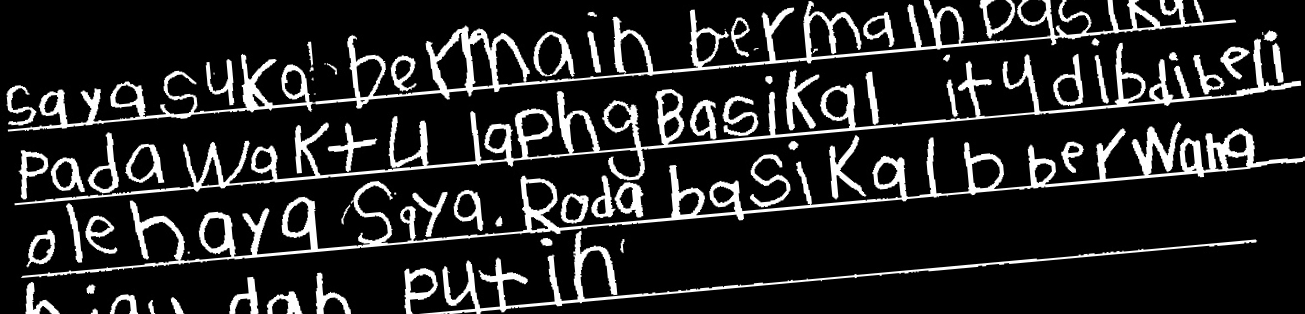 saya suka bermain bermain basikal
pada waktu laphg Basikal itu dibdibeli
oleh aya Saya. Roda basikal b berwana
hijau dah putih